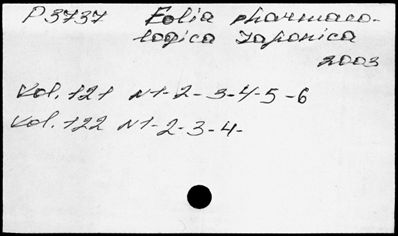 P3737 Folia pharmaco-
logica Japonica
2003
Vol. 121 N1-2-3-4-5-6
Vol. 122 N1-2-3-4-